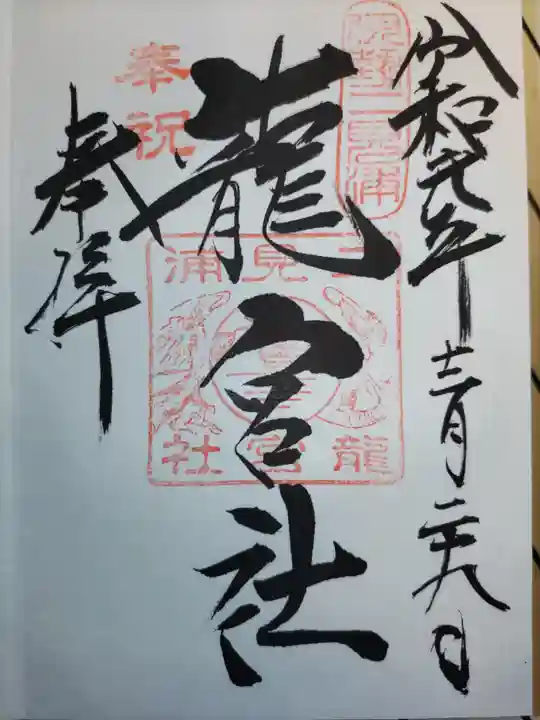 令和元年十二月二十九日
伊勢二見浦
龍宮社
二見浦
龍宮社
奉祝
奉拝